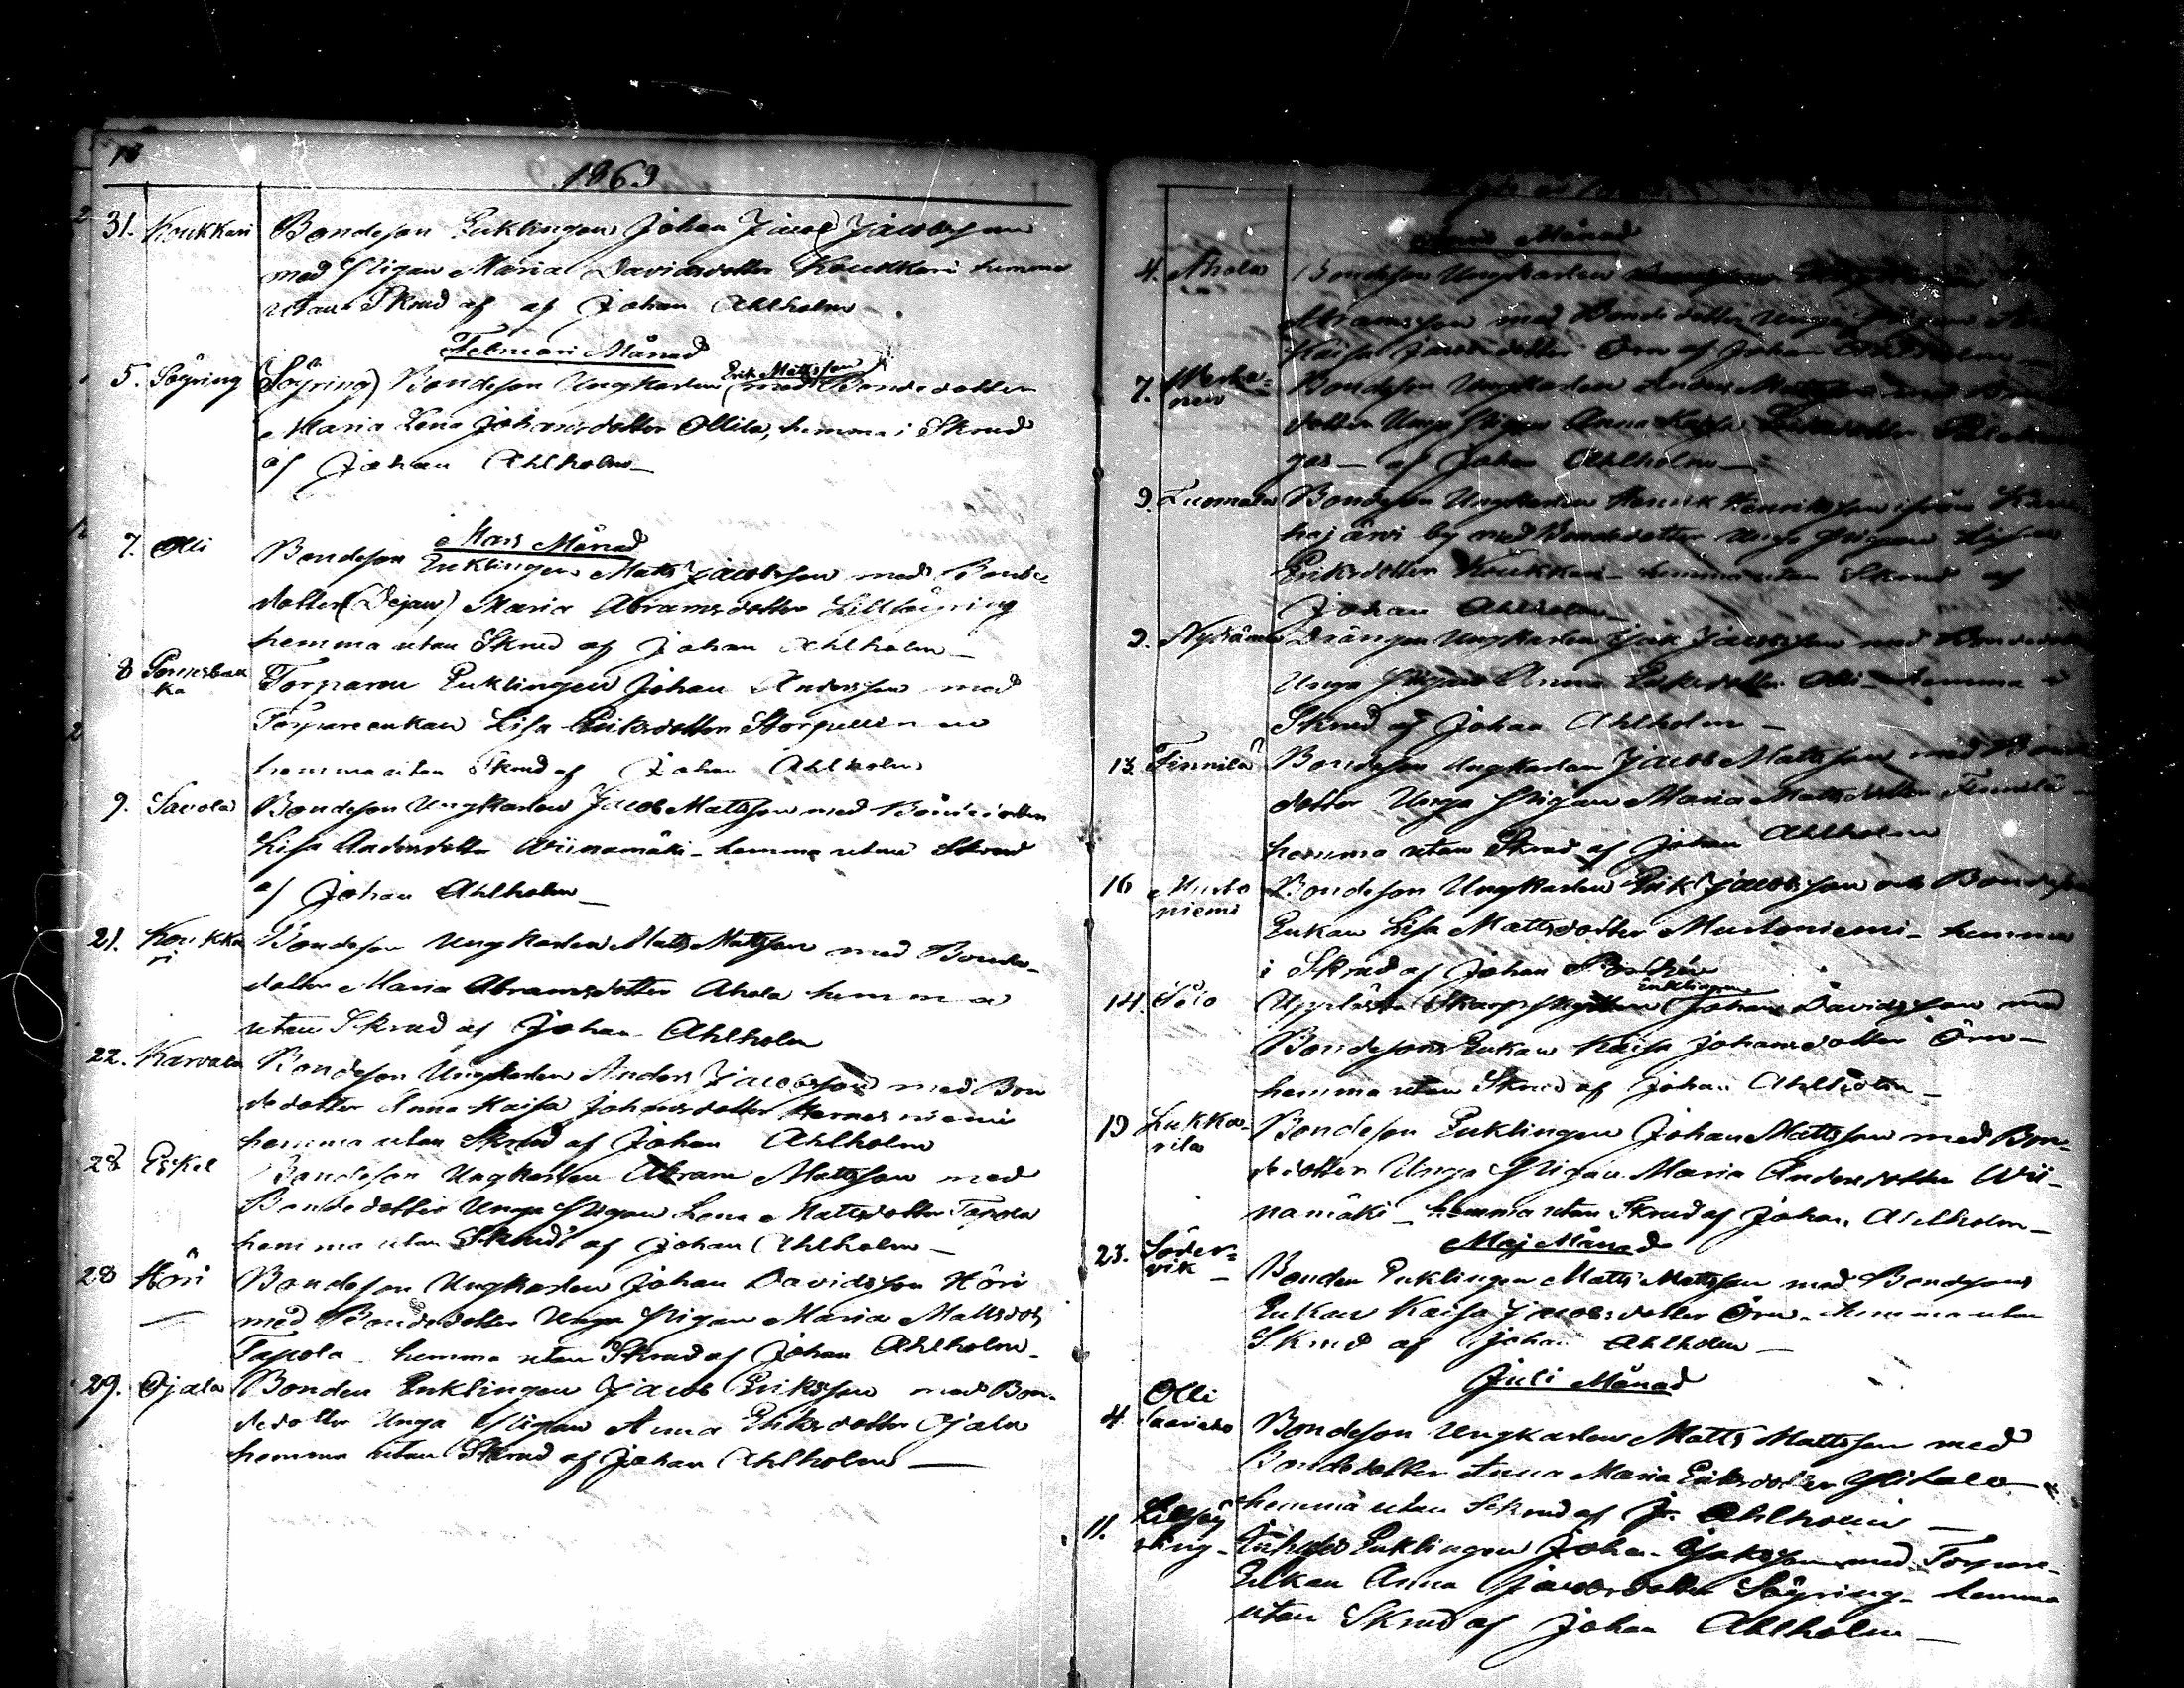 1869
31. Koukkari Bondeson Enklingen Johan Jacob Jacobsson
med Pigan Maria Davidsdotter Koukkari hemma
utan Skrud af af Johan Ahlholm
Februari Månad
5. Söyring (Söyring) Bondeson Ungkarlen Erik Mattsson med Bondedotter
Maria Lena Johansdotter Ollila, hemma i Skrud
af Johan Ahlholm
Mars Månad
7. Olli Bondeson Enklingen Matts Jacobsson med Bonde
dotter (Dejan) Maria Abramsdotter Lillsöyring
hemma utan Skrud af Johan Ahlholm
8 Torparen Enklingen Johan Andersson med
Torpareenkan Lisa Eriksdotter
hemma utan Skrud af Johan Ahlholm
9. Savola Bondeson Ungkarlen Jacob Mattsson med Bondedotter
Lisa Andersdotter Wiinamäki hemma utan Skrud
af Johan Ahlholm
21. Koukka
ri Bondeson Ungkarlen Matts Mattsson med Bonde-
dotter Maria Abramsdotter Ahola hemma
utan Skrud af Johan Ahlholm
22. Karvala Bondeson Ungkarlen Anders Jacobsson med Bon
dedotter Anna Kaisa Johansdotter Hernesniemi
hemma utan Skrud af Johan Ahlholm
28 Eskel Bondeson Ungkarlen Abram Mattsson med
Bondedotter Unga Pigan Lena Mattsdotter Tapola
hemma utan Skrud af Johan Ahlholm
28 Höri Bondeson Ungkarlen Johan Davidsson Höri
med Bondedotter Unga Pigan Maria Mattsdot
Tapola hemma utan Skrud af Johan Ahlholm
29. Ojala Bonden Enklingen Jacob Eriksson med Bon-
dedotter Unga Pigan Anna Eriksdotter Ojala
hemma utan Skrud af Johan Ahlholm
Månad
4. Ahola Bondeson Ungkarlen
Abramsson med Bondedotter Unga Pigan
Kaisa Jacobsdotter Örn af Johan
7. Bondeson Ungkarlen Anders Mattsson med
dotter Unga Pigan Anna Kaisa
af Johan Ahlholm
9. Tuomala Bondeson Ungkarlen Henrik Henriksson ifrån
hajärvi by med Bondedotter Unga Pigan Lisa
Eriksdotter Koukkari hemma utan Skrud af
Johan Ahlholm
9. Drängen Ungkarlen Isak Jacobsson med
Unga Pigan Anna Eriksdotter Olli hemma i
Skrud af Johan Ahlholm
13. Finnilä Bondeson Ungkarlen Jacob Mattsson med Bonde
dotter Unga Pigan Maria Mattsdotter Finnilä
hemma utan Skrud af Johan Ahlholm
16 Musto
niemi Bondeson Ungkarlen Erik Jacobsson och
Enkan Lisa Mattsdotter Mustoniemi hemma
i Skrud af Johan
14. Salo Skarpskytten Enklingen Johan Davidsson med
Bondesons Enkan Kaisa Johansdotter Örn
hemma utan Skrud af Johan Ahlholm
19 Lukka-
rila Bondeson Enklingen Johan Mattsson med Bon-
dedotter Unga Pigan Maria Andersdotter Wii-
namäki hemma utan Skrud af Johan Ahlholm
Maj Månad
23. Söder=
vik Bonden Enklingen Matts Mattsson med Bondesons
Enkan Kaisa Jacobsdotter Örn hemma utan
Skrud af Johan Ahlholm
Juli Månad
4 Olli
Bondeson Ungkarlen Matts Mattsson med
Bondedotter Anna Maria Eriksdotter Ylitalo
hemma utan Skrud af J. Ahlholm
11. Lillsöy
ring Enklingen Johan Isaksson med Torpare-
Enkan Anna Jacobsdotter Söyring hemma
utan Skrud af Johan Ahlholm